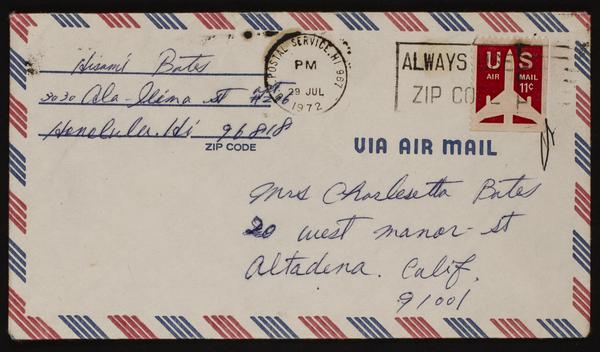 Hisami Bates
3030 Ala-Ilima St Apt #206
Honolulu. Hi 96818
ZIP CODE
POSTAL SERVICE, HI 967
PM
29 JUL
1972
ALWAYS USE
ZIP CODE
UAS
AIR MAIL
11¢
VIA AIR MAIL
Mrs Charlesetta Bates
20 west manor-st
Altadena. Calif.
91001